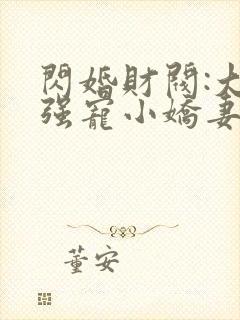 閃婚財閥:大
强寵小嬌妻
董安